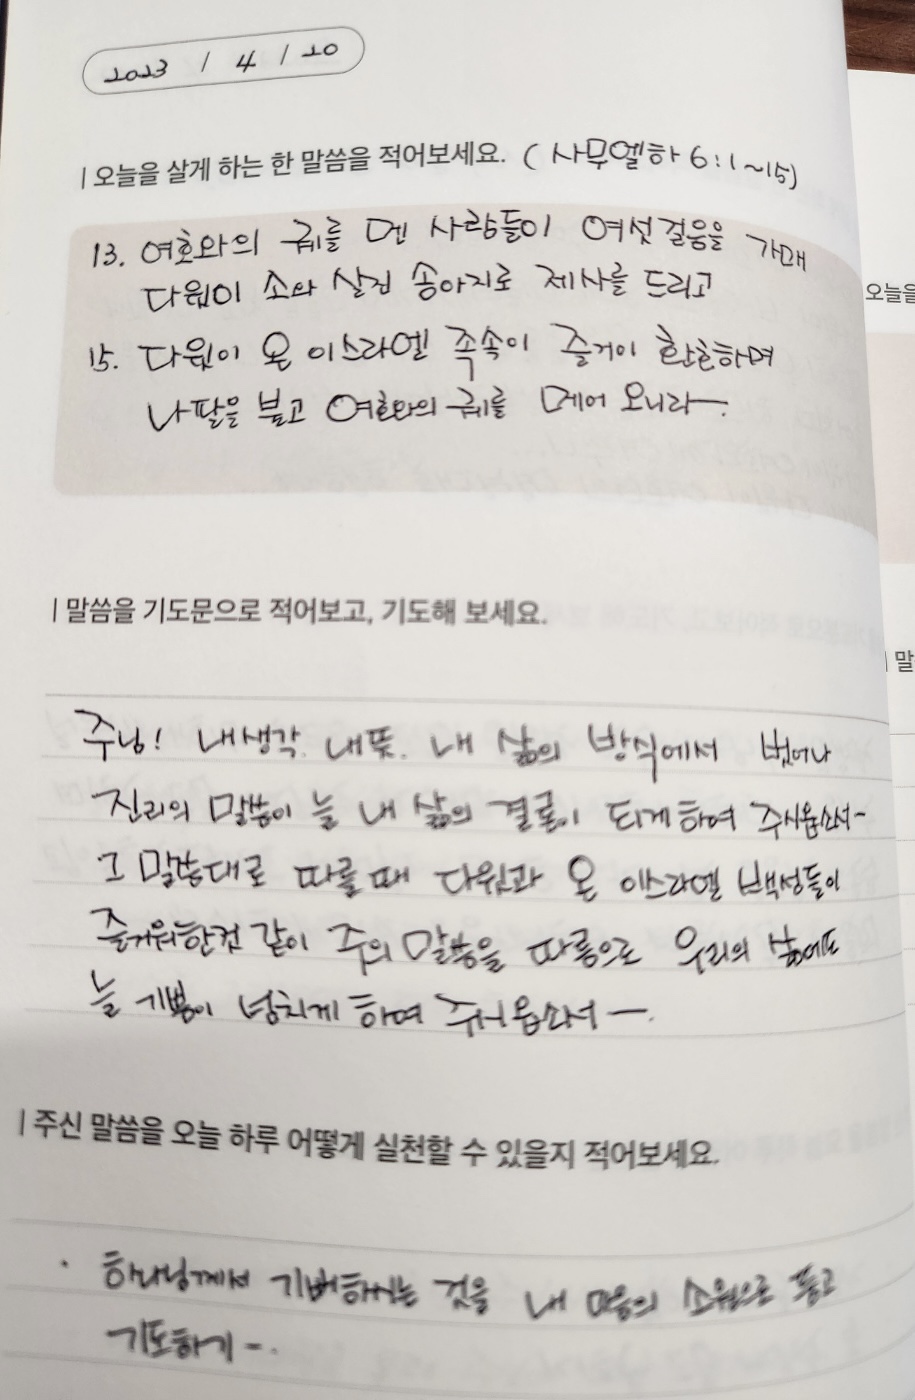 2023 / 4 / 20
오늘을 살게 하는 한 말씀을 적어보세요. (사무엘하 6:1~15)
13. 여호와의 궤를 멘 사람들이 여섯 걸음을 가매
다윗이 소와 살진 송아지로 제사를 드리고
15. 다윗이 온 이스라엘 족속이 즐거이 환호하며
나팔을 불고 여호와의 궤를 메어 오니라—.
말씀을 기도문으로 적어보고, 기도해 보세요.
주님! 내생각. 내뜻. 내 삶의 방식에서 벗어나
진리의 말씀이 늘 내 삶의 결론이 되게하여 주시옵소서-
그 말씀대로 따를때 다윗과 온 이스라엘 백성들이
즐거워한것 같이 주의 말씀을 따름으로 우리의 삶에도
늘 기쁨이 넘치게 하여 주시옵소서—.
주신 말씀을 오늘 하루 어떻게 실천할 수 있을지 적어보세요.
· 하나님께서 기뻐하시는 것을 내 마음의 소원으로 품고
기도하기-.
오늘을
말